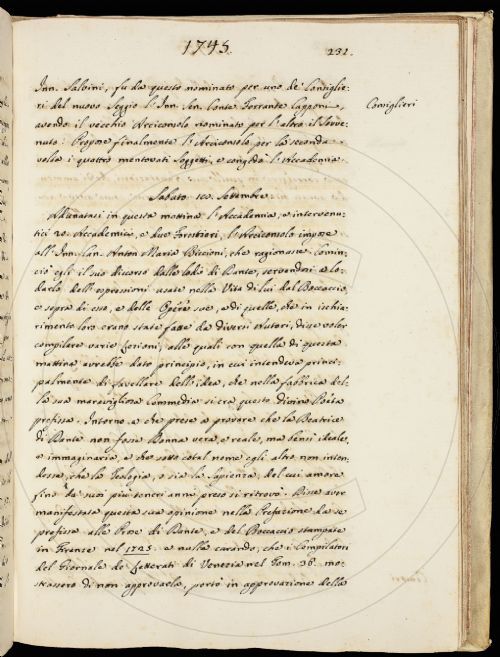 1745.
231.
Inn. Salvini, fu da questo nominato per uno de' Consiglie-
ri del nuovo Seggio l'Inn. Sen. Conte Ferrante Capponi,
Consiglieri
avendo il vecchio Arciconsolo nominato per l'altro il Sorve-
nuto: Propose finalmente l'Arciconsolo per la seconda
volta i quattro mentovati Soggetti, e congedò l'Accademia.
Sabato Settembre
Adunatasi in questa mattina l'Accademia, e intervenu-
tici 20. Accademici, e due Forestieri, l'Arciconsolo impose
all'Inn. Can. Anton Maria Biscioni, che ragionasse. Comin-
ciò egli il suo discorso dalla lode di Dante, servendosi a lo-
darlo dell'espressioni usate nella Vita di lui dal Boccaccio,
e sopra di esso, e delle Opere sue, e di quelle, che in ischia-
rimento loro erano state fatte da diversi Autori, disse voler
compilare varie Lezioni, alle quali con quella di questa
mattina avrebbe dato principio, in cui intendeva princi-
palmente di favellare dell'idea, che nella fabbrica del-
la sua maravigliosa Commedia si era questo divino Poeta
prefissa. Intorno a che prese a provare che la Beatrice
di Dante non fosse Donna vera, e reale, ma bensì ideale,
e immaginaria, e che sotto cotal nome egli altro non inten-
desse, che la Teologia, o sia la Sapienza, del cui amore
fino da' suoi più teneri anni preso si ritrovò. Disse aver
manifestata questa sua opinione nella Prefazione da se
preposta alle Prose di Dante, e del Boccaccio stampate
in Firenze nel 1723. e nulla curando, che i Compilatori
del Giornale de' Letterati di Venezia nel Tom. 35. mo-
strassero di non approvarla, portò in approvazione della